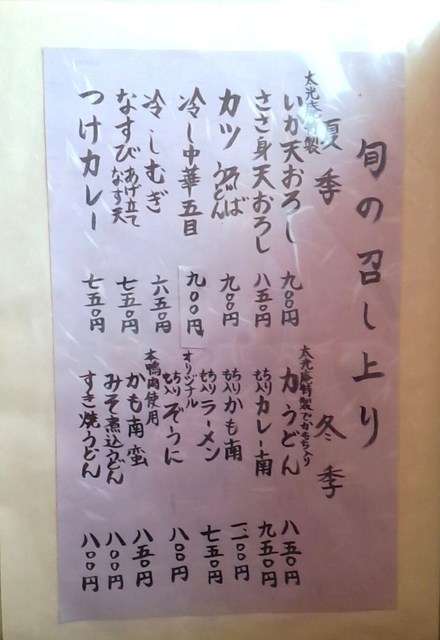 旬の召し上り
夏季
太光庵特製
いか天おろし 九〇〇円
ささ身天おろし 八五〇円
カツ そば うどん 九〇〇円
冷し中華五目 九〇〇円
冷しむぎ 六五〇円
なすび あげ立て なす天 七五〇円
つけカレー 七五〇円
冬季
太光庵特製でかもち入り
力うどん 八五〇円
もち入り カレー南 九五〇円
もち入り かも南 一、一〇〇円
もち入り ラーメン 七五〇円
オリジナル
もち入り ぞうに 八〇〇円
本鴨肉使用
かも南蛮 八五〇円
みそ煮込うどん 八〇〇円
すき焼うどん 八〇〇円